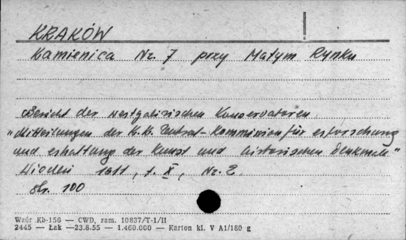 KRAKÓW
Kamienica Nr. 7 przy Małym Rynku
Bericht der westgalizischen Konservatoren
"Mitteilungen der K.K. Zentral-Kommission für erforschung
und erhaltung der Kunst und historischen Denkmale"
Wiedeń 1911, t. X, Nr. 2
str. 100
Wzór Kb-156 — CWD, zam. 10837/T-1/H
2445 — Łsk — 23.8.55 — 1.460.000 — Karton kl. V A1/180 g